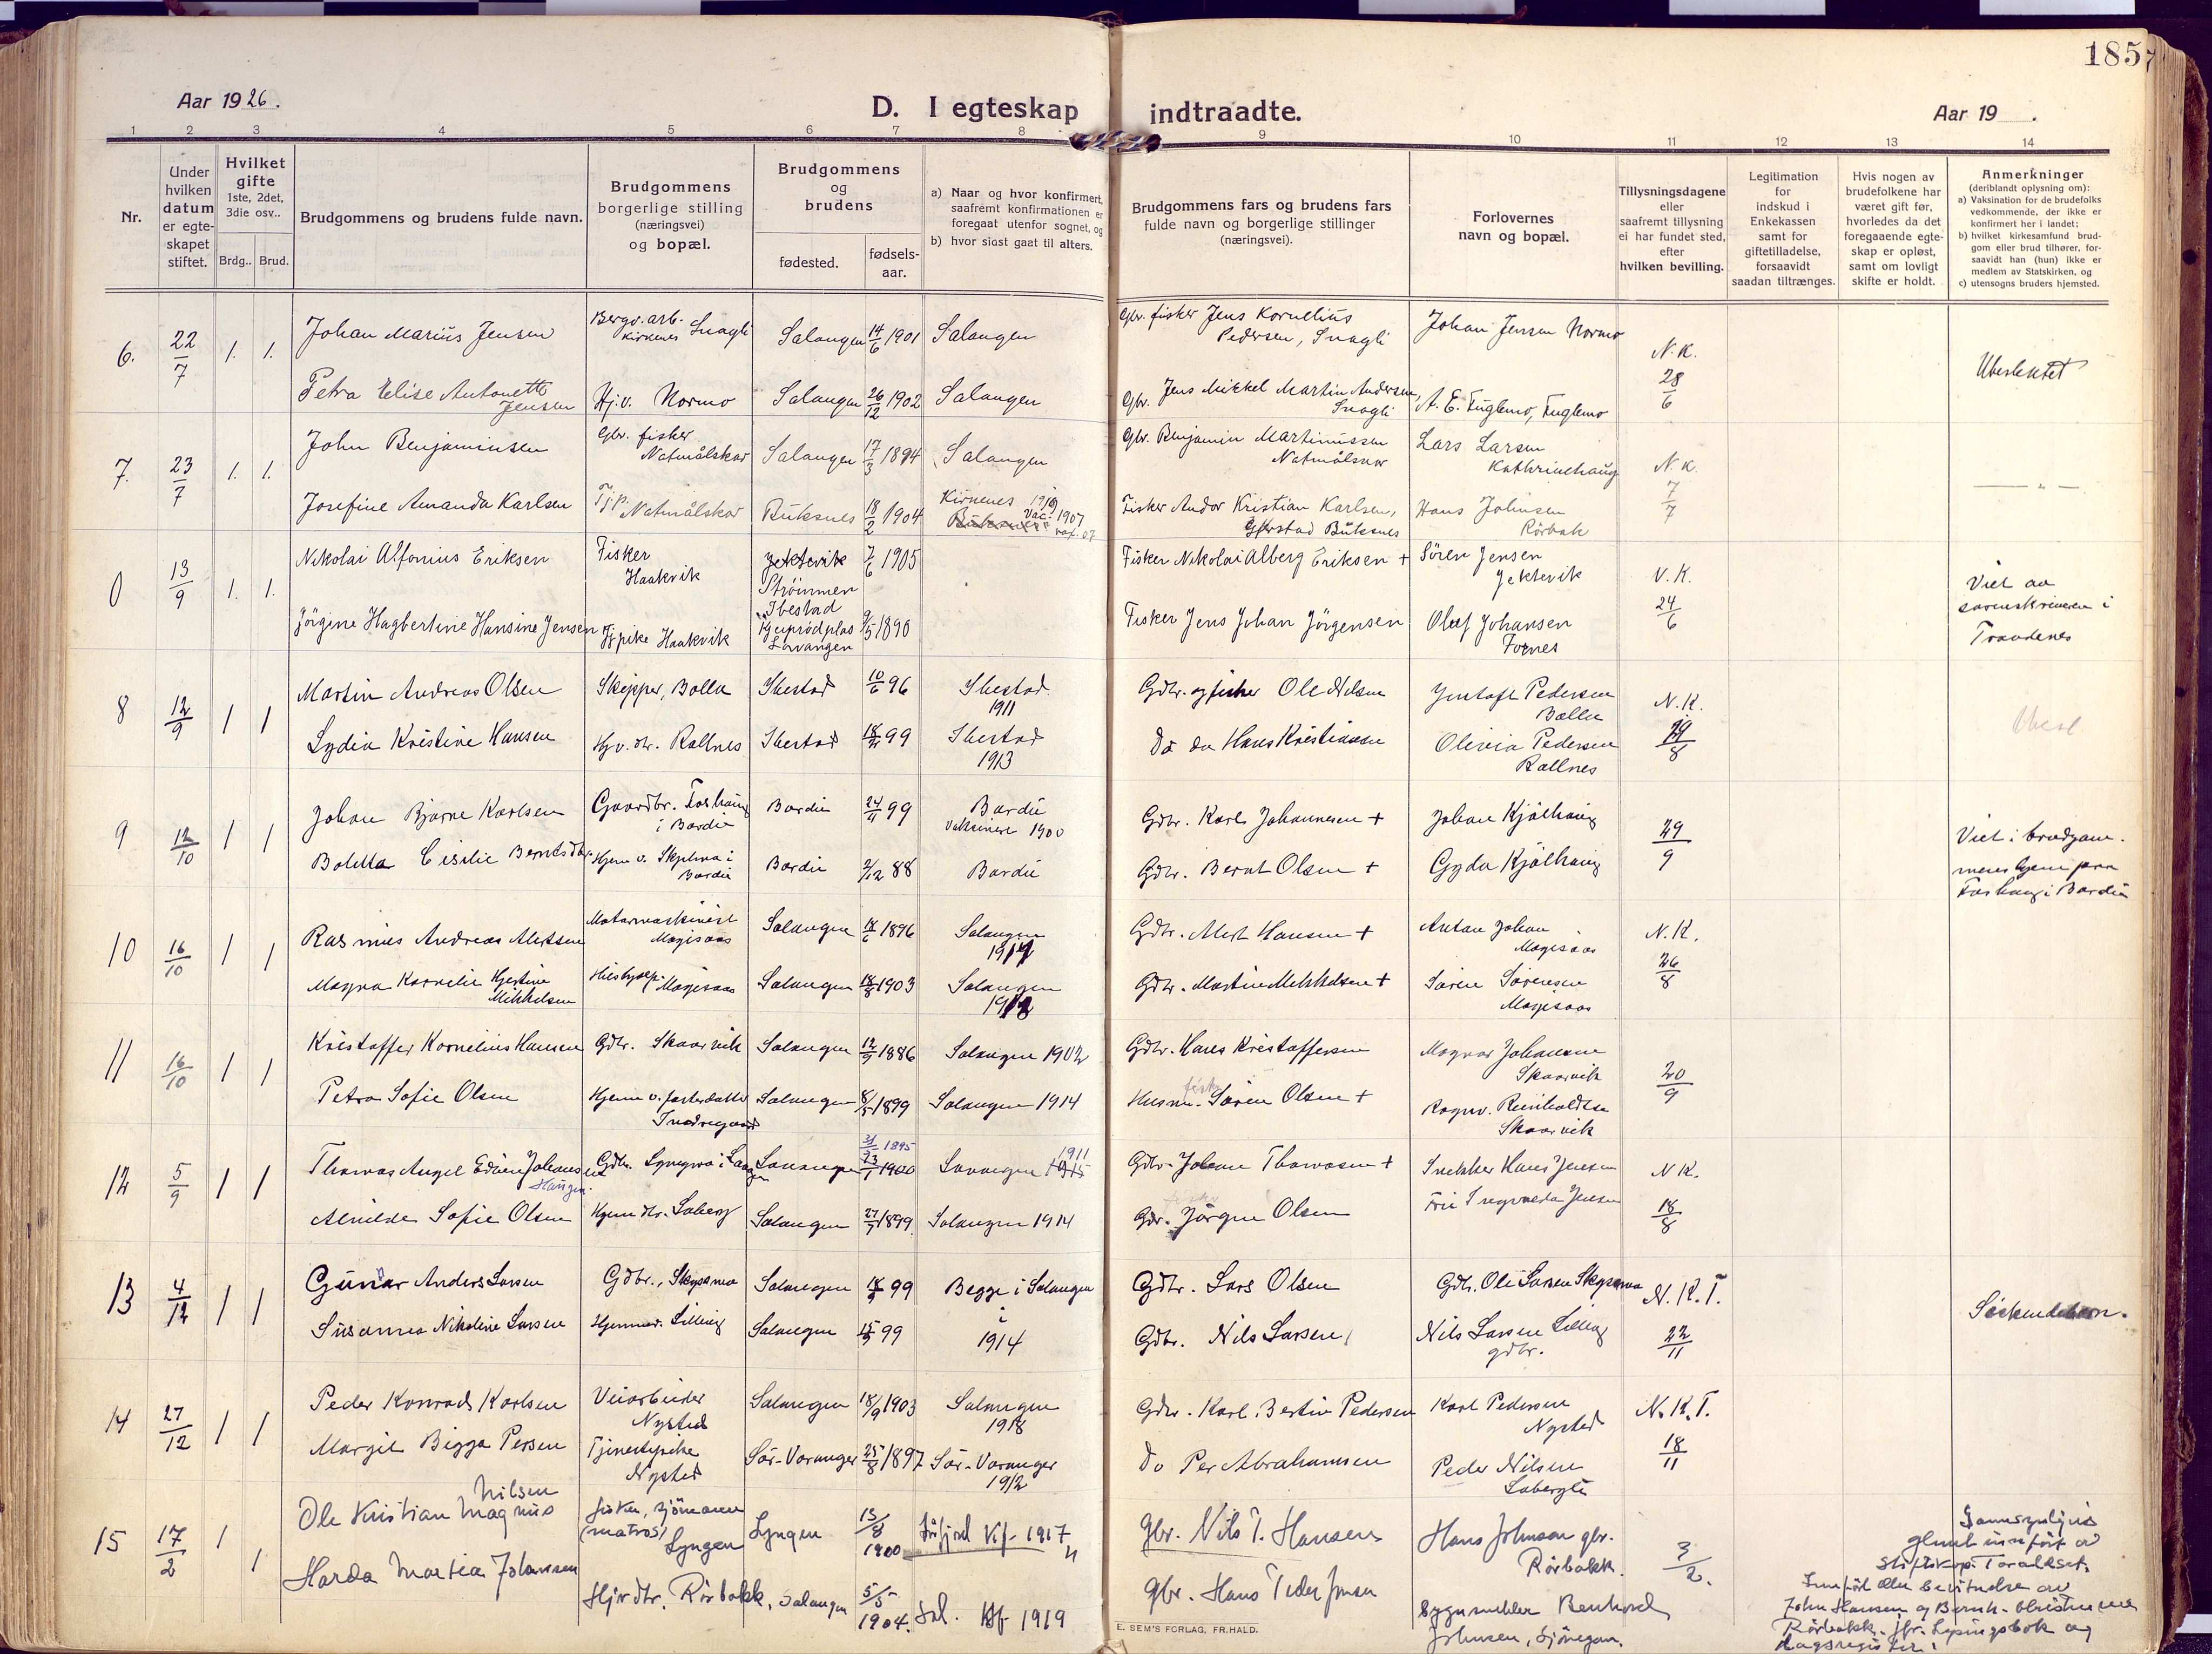 185
Aar 1926.
D. I egteskap indtraadte.
Aar 19 .
1 2 3 4 5 6 7 8 9 10 11 12 13 14
Nr.
Under hvilken datum er egte-skapet stiftet.
Hvilket gifte 1ste, 2det, 3die osv..
Brdg.. Brud.
Brudgommens og brudens fulde navn.
Brudgommens borgerlige stilling (næringsvei) og bopæl.
Brudgommens og brudens
fødested. fødsels-aar.
a) Naar og hvor konfirmert, saafremt konfirmationen er foregaat utenfor sognet, og
b) hvor sidst gaat til alters.
Brudgommens fars og brudens fars fulde navn og borgerlige stillinger (næringsvei).
Forlovernes navn og bopæl.
Tillysningsdagene eller saafremt tillysning ei har fundet sted, efter hvilken bevilling.
Legitimation for indskud i Enkekassen samt for giftetilladelse, forsaavidt saadan tiltrænges.
Hvis nogen av brudefolkene har været gift før, hvorledes da det foregaaende egte-skap er opløst, samt om lovligt skifte er holdt.
Anmerkninger
(deriblandt oplysning om):
a) Vaksination for de brudefolks vedkommende, der ikke er konfirmert her i landet;
b) hvilket kirkesamfund brud-gom eller brud tilhører, for-saavidt han (hun) ikke er medlem av Statskirken, og
c) utensogns bruders hjemsted.
6. 22/7 1. 1. Johan Marius Jensen Bergv. arb. Kirkenes Snagli Salangen 14/6 1901 Salangen Gbr. fisker Jens Kornelius Pedersen, Snagli Johan Jensen Normo N.K. 28/6 Ubeslektet
Petra Elise Antonette Jensen Hj.v. Normo Salangen 26/12 1902 Salangen Gbr. Jens Mikkel Martin Andersen, Snagli A. E. Fuglemo, Fuglemo
7. 23/7 1. 1. John Benjaminsen Gbr. fisker Natmålskar Salangen 17/3 1894 Salangen Gbr. Benjamin Martinussen Lars Larsen Kathrinehaug N.K. 7/7 — " —
Josefine Amanda Karlsen Tj.p. Natmålskar Buksnes 18/2 1904 Kirkenes Vac. 1907 Fisker Andor Kristian Karlsen, Buksnes Hans Johnsen Rörbak
0 13/9 1. 1. Nikolai Alfonius Eriksen Fisker Haakvik Jektevik Strömmen Ibestad 7/6 1905 Fisker Nikolai Alberg Eriksen + Sören Jensen Jektevik V.K. 24/6 Viet av sorenskriveren i Trondenes
Jörgine Hagbertine Hansine Jensen Tjpike Haakvik Lavangen 9/5 1890 Fisker Jens Johan Jörgensen Oluf Johansen Fornes
8 12/9 1 1 Martin Andreas Olsen Skipper, Bolla Ibestad 10/6 96 Ibestad 1911 Gdbr. og fisker Ole Nilsen Gustaft Pedersen Bolla N.K. 29/8 Ubesl
Lydia Kristine Hansen Hjv. dtr. Rollnes Ibestad 99 Ibestad 1913 Do do Hans Kristiansen Olivia Pedersen Rollnes
9 12/10 1 1 Johan Bjarne Karlsen Gaardbr. Foshaug i Bardu Bardu 24/11 99 Bardu Vaksinert 1900 Gdbr. Karl Johannesen + Johan Kjölhaug 29/9 Viet i brudgom-mens hjem paa Foshaug i Bardu
Boletta Cisilie Berntsdtr. Hjem v. i Bardu Bardu 2/12 88 Bardu Gdbr. Bernt Olsen + Gyda Kjölhaug
10 16/10 1 1 Rasmus Andreas Albertsen Motormaskinist Bardu Salangen 1896 Salangen Gdbr. Albert Hansen + Anton Johan N.K. 26/8
Magna Kornelie Kjerstine Mikkelsen Salangen 18/8 1903 Salangen Gdbr. Martin Mikkelsen + Sören Sörensen
11 16/10 1 1 Kristoffer Kornelius Hansen Gdbr. Skaarvik Salangen 12/9 1886 Salangen 1902 Gdbr. Hans Kristoffersen Magnor Johansen Skaarvik 20/9
Petra Sofie Olsen Hjem v. fosterdatter Salangen 8/5 1899 Salangen 1914 Husm. fisk Sören Olsen + Ragnv. Reinholdtsen Skaarvik
12 5/9 1 1 Thomas Angel Edvin Johansen Haugen. Gdbr. 31/ 1895 1900 Lavangen 1911 1915 Gdbr. Johan Thomasen + Snekker Hans Jensen N K. 18/8
Alvilde Sofie Olsen Hjem dtr. Soberg Salangen 27/7 1899. Salangen 1914 Gbr. Jörgen Olsen Fru Ingvalda Jensen
13 4/12 1 1 Gunnar Anders Larsen Gdbr., Salangen 99 Begge i Salangen i 1914 Gdbr. Lars Olsen Gdbr. Ole Larsen N.K.T. 22/11 Söskendebarn.
Susanna Nikoline Larsen Hjemmev. Salangen 99 Gdbr. Nils Larsen, Nils Larsen gdbr.
14 27/12 1 1 Peder Konrad Karlsen Veiarbeider Nysted Salangen 18/9 1903 Salangen 1918 Gdbr. Karl Bertin Pedersen Karl Pedersen Nysted N.K.T. 18/11
Margit Bigga Persen Tjenestepike Nysted Sör-Varanger 25/8 1897 Sör-Varanger 1912 Do Per Abrahamsen Peder Nilsen Labergli
15 17/2 1 1 Ole Kristian Magnus Nilsen fisker, sjömann (matros) Lyngen Lyngen 13/8 1900 Kf. 1917 Gbr. Nils T. Hansen Hans Johnsen gbr. Rörbakk. 3/2.
Harda Martea Johansen Hjv dtr. Rörbakk, Salangen 5/5 1904. Sal. Kf 1919 Gbr. Hans Peder Jonsen Bygnsnekker Bernhard Johnsen, Sjövegan.
Sannsynligvis glemt innfört av
Innfört etter bevitnelse av
John Hansen og Bernh.
Rörbakk. jfr. Lysingsbok og
dagsregister.
E. SEM'S FORLAG, FR.HALD.